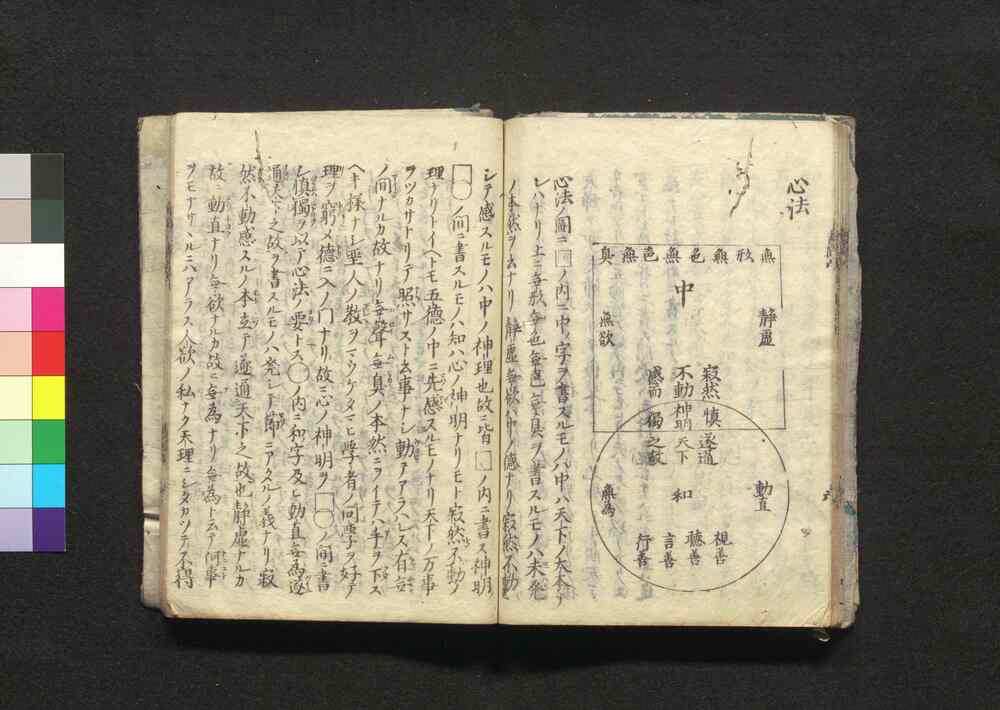 心法
無形無色無臭
中
静虚
無欲
寂然
不動
感而
慎
神明
獨
遂通
天下
之故
動直
和
無為
視善
聴善
言善
行善
心法ノ圖ニ□ノ内ニ中ノ字ヲ書スルモノハ中ハ天下ノ大本ニテ
ノ本然ヲ云ナリ静虚無欲ハ中ノ徳ナリ寂然不動ニ
シテ感スルモノハ中ノ神理也故ニ皆□ノ内ニ書ス神明
□○ノ間ニ書スルモノハ知ハ心ノ神明ナリモト寂然不動ノ
理ナリトイヘトモ五徳ノ中ニ先感スルモノナリ天下ノ万事
ヲツカサトリテ照サスト云事ナシ動テアラハレス有無
ノ間ナルカ故ナリ無聲無臭ノ本然ニヲイテハ手ヲ下ス
ヘキ様ナシ聖人ノ教ヲマウケタマヒ学者ノ問学ヲ好テ
理ヲ窮メ徳ニ入ノ門ナリ故ニ心ノ神明ヲ□○ノ間ニ書
シ慎獨ヲ以テ心法ノ要トス○ノ内ニ和字及ヒ動直無為遂
通天下之故ヲ書スルモノハ発シテ節ニアタルノ義ナリ寂
然不動感スルノ本立テ遂通天下之故也静虚ナルカ
故ニ動直ナリ無欲ナルカ故ニ無為ナリ無為ト云テ何事
ヲモナサヽルニハアラス人欲ノ私ナク天理ニシタカツテ不得